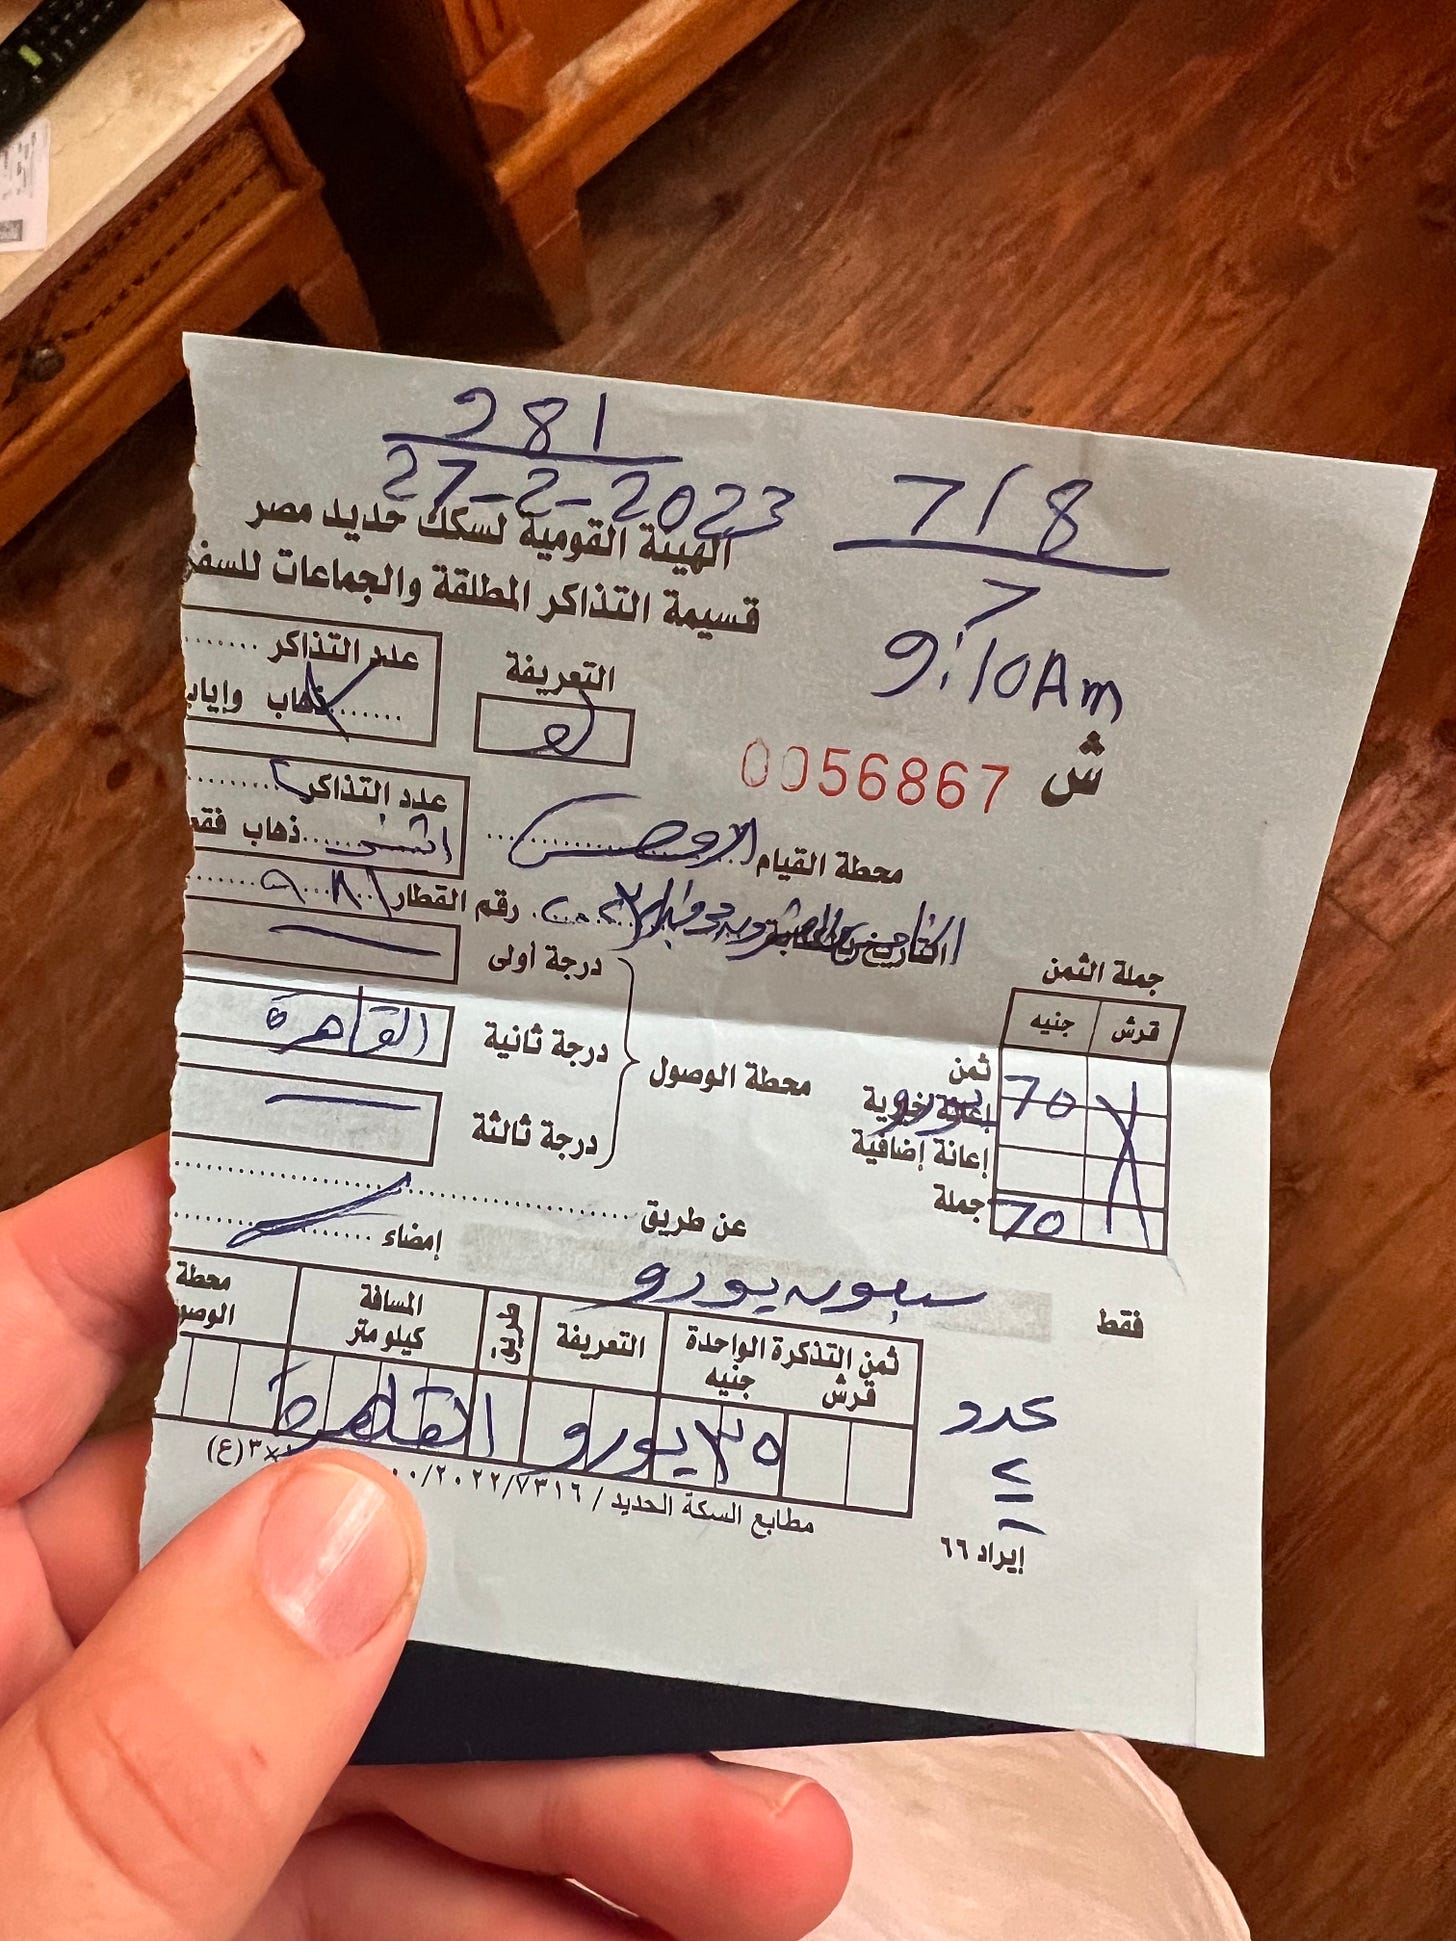 281
27-2-2023
7/8
7
9:10Am
الهيئة القومية لسكك حديد مصر
قسيمة التذاكر المطلقة والجماعات للسفر
التعريفة
عدد التذاكر
ذهاب وإياب
ش 0056867
عدد التذاكر
ذهاب فقط
محطة القيام الاقصر
رقم القطار ٩٨١
جملة الثمن
قرش جنيه
ثمن 70
إعانة إضافية
جملة 70
محطة الوصول
درجة أولى
درجة ثانية القاهرة
درجة ثالثة
عن طريق
إمضاء
فقط سبعون يورو
ثمن التذكرة الواحدة
قرش جنيه
التعريفة
طريق
المسافة
كيلو متر
محطة
٣٥ يورو القاهرة
عدد
٢
مطابع السكة الحديد / ٢٠٢٢/٧٣١٦
إيراد ٦٦